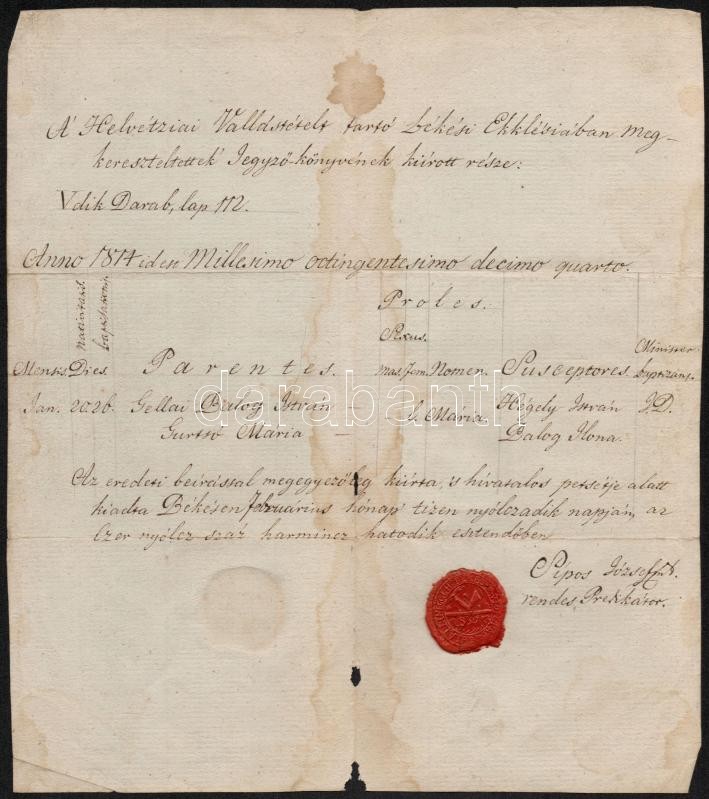 A' Helvétziai Vallástételt tartó békési Ekklésiában meg-
kereszteltettek' Jegyző-könyvének kiírott része:
Vdik Darab, lap 112.
Anno 1814 idest Millesimo octingentesimo decimo quarto.
Proles.
Sexus.
Mensis Dies nativitatis baptismi Parentes. mas. fem. Nomen. Susceptores. Minister baptizans.
Jan. 20 26. Gellai Balog István — 1. Mária. Hégely István J.D.
Gurtsó Mária — Balog Ilona.
Az eredeti beirással megegyezőleg kiírta, 's hivatalos petsétje alatt
kiadta Békésen Februárius hónap tizen nyólczadik napján, az
Ezer nyólcz száz harmincz hatodik esztendőben
Sipos József
rendes Prédikátor.
darabanth